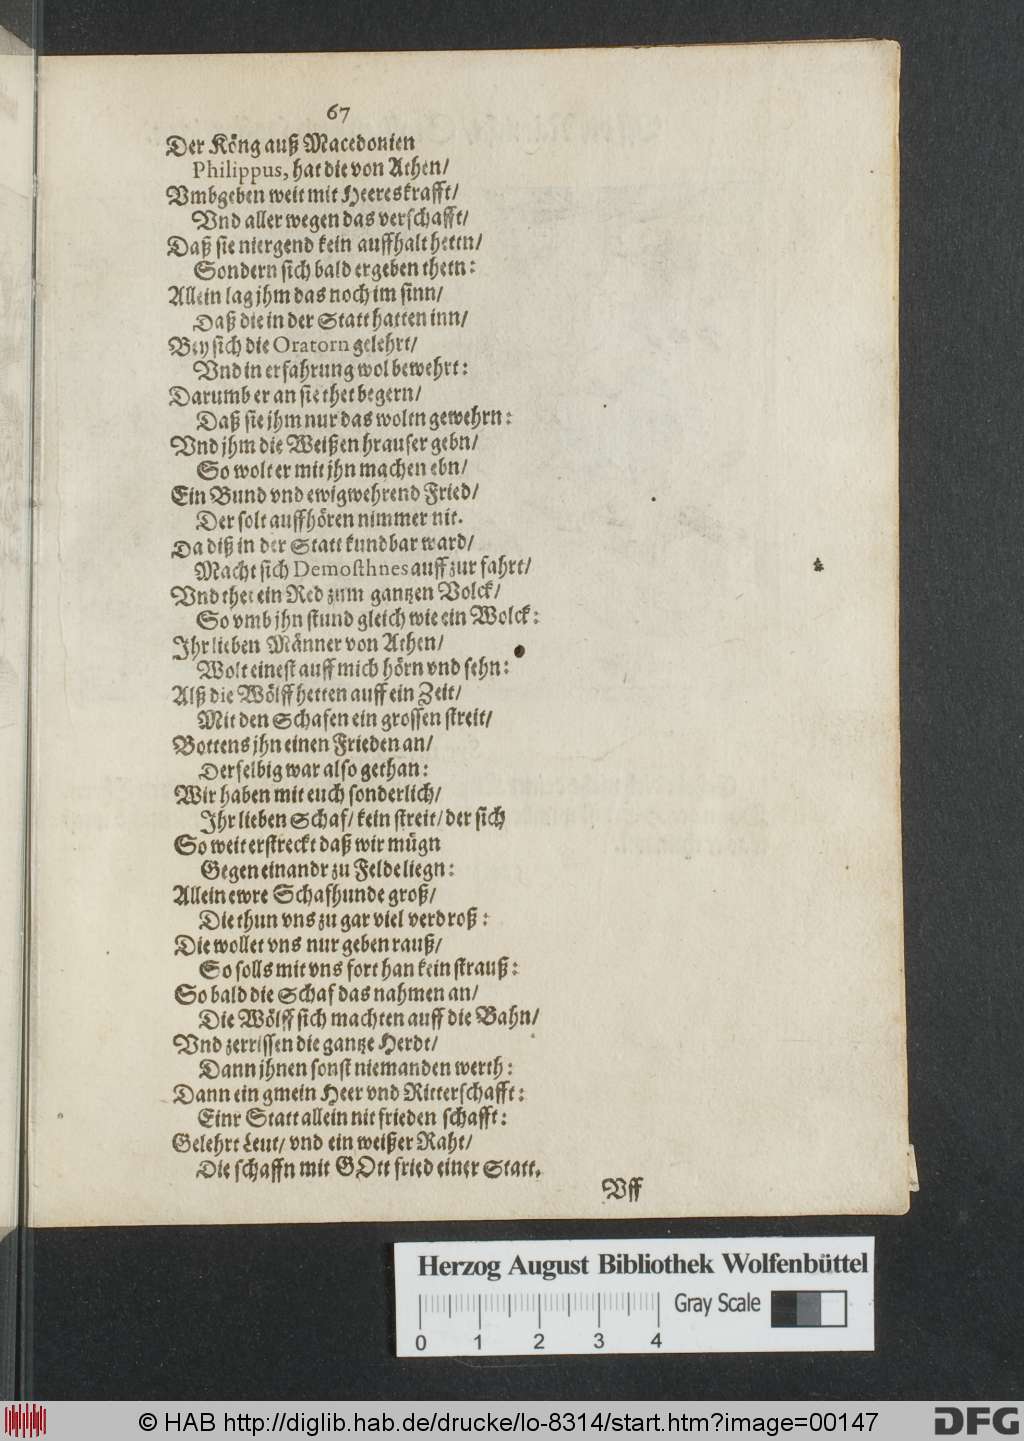 67
Der Köng auß Macedonien
Philippus, hat die von Athen/
Vmbgeben weit mit Heereskrafft/
Vnd aller wegen das verschafft/
Daß sie niergend kein auffhalt hettn/
Sondern sich bald ergeben thetn:
Allein lag jhm das noch im sinn/
Daß die in der Statt hatten inn/
Bey sich die Oratorn gelehrt/
Vnd in erfahrung wol bewehrt:
Darumb er an sie thet begern/
Daß sie jhm nur das woltn gewehrn:
Vnd jhm die Weißen hrauser gebn/
So wolt er mit jhn machen ebn/
Ein Bund vnd ewigwehrend Fried/
Der solt auffhören nimmer nit.
Da diß in der Statt kundbar ward/
Macht sich Demosthnes auff zur fahrt/
Vnd thet ein Red zum gantzen Volck/
So vmb jhn stund gleich wie ein Wolck:
Jhr lieben Männer von Athen/
Wolt einest auff mich hörn vnd sehn:
Alß die Wölff hetten auff ein Zeit/
Mit den Schafen ein grossen streit/
Bottens jhn einen Frieden an/
Derselbig war also gethan:
Wir haben mit euch sonderlich/
Jhr lieben Schaf/ kein streit/ der sich
So weit erstreckt daß wir mügn
Gegen einandr zu Felde liegn:
Allein ewre Schafhunde groß/
Die thun vns zu gar viel verdroß:
Die wollet vns nur geben rauß/
So solls mit vns fort han kein strauß:
So bald die Schaf das nahmen an/
Die Wölff sich machten auff die Bahn/
Vnd zerrissen die gantze Herdt/
Dann jhnen sonst niemanden werth:
Dann ein gmein Heer vnd Ritterschafft:
Einr Statt allein nit frieden schafft:
Gelehrt Leut/ vnd ein weißer Raht/
Die schaffn mit GOtt fried einer Statt.
Vff
Herzog August Bibliothek Wolfenbüttel
Gray Scale
0 1 2 3 4
© HAB http://diglib.hab.de/drucke/lo-8314/start.htm?image=00147
DFG